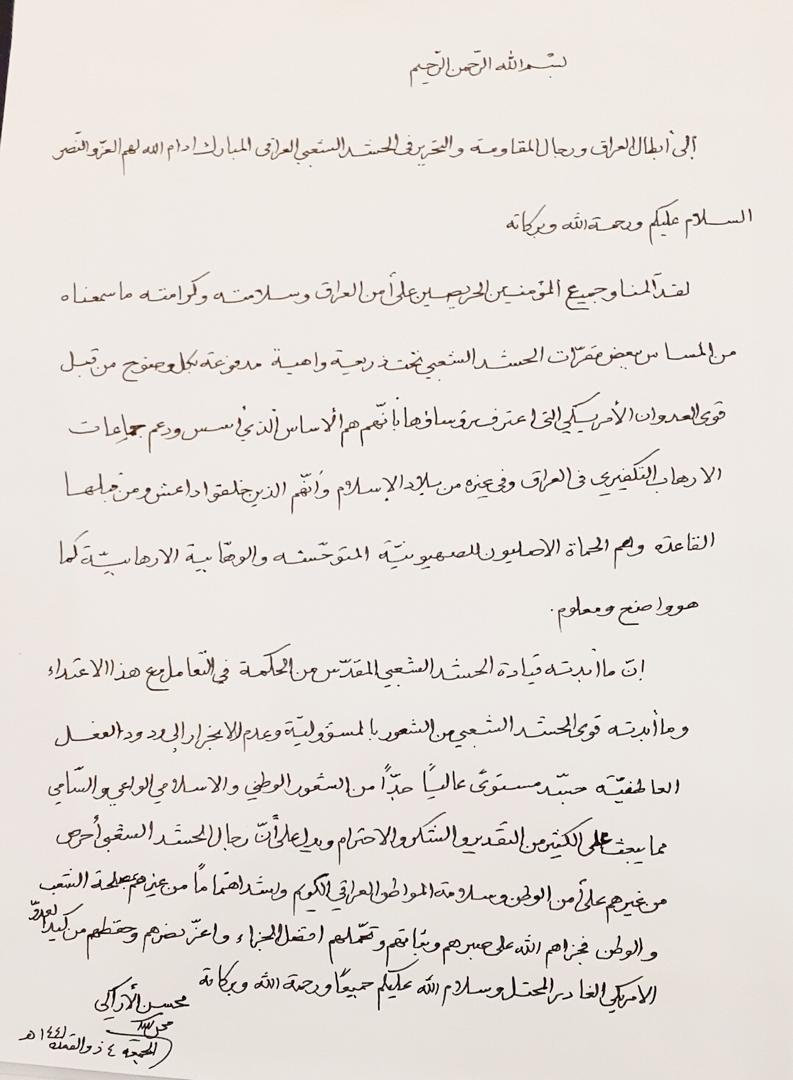 بسم الله الرحمن الرحيم
إلى أبطال العراق ورجال المقاومة والتحرير في الحشد الشعبي العراقي المبارك ادام الله لهم العز والنصر
السلام عليكم ورحمة الله وبركاته
لقد آلمنا وجميع المؤمنين الحريصين على أمن العراق وسلامته وكرامته ما سمعناه
من المساس ببعض مقرّات الحشد الشعبي تحت ذريعة واهية مدفوعة بكل وضوح من قبل
قوى العدوان الأمريكي التي اعترف رؤساؤها بأنّهم هم الأساس الذي أسس ودعم جماعات
الارهاب التكفيري في العراق وفي غيره من بلاد الإسلام وأنّهم الذين خلقوا داعش ومن قبلها
القاعدة وهم الحماة الاصليون للصهيونيّة المتوحّشة والوهّابية الارهابيّة كما
هو واضح ومعلوم.
انّ ما أبدته قيادة الحشد الشعبي المقدّس من الحكمة في التعامل مع هذا الاعتداء
وما أبدته قوى الحشد الشعبي من الشعور بالمسؤوليّة وعدم الانجرار إلى ردود الفعل
العاطفيّة جسّد مستوىً عالياً جدّاً من الشعور الوطني والاسلامي الواعي والسّامي
مما يبعث على الكثير من التقدير والشكر والاحترام ويدل على أنّ رجال الحشد الشعبي أحرص
من غيرهم على أمن الوطن وسلامة المواطن العراقي الكريم واشد اهتماماً من غيرهم بمصلحة الشعب
والوطن فجزاهم الله على صبرهم وثباتهم وتحمّلهم افضل الجزاء واعزّ نصرهم وحفظهم من كيد العدوّ
الامريكي الغادر المحتل وسلام الله عليكم جميعاً ورحمة الله وبركاته
محسن الأراكي
الجمعة ٤ ذو القعدة ١٤٤١ هـ